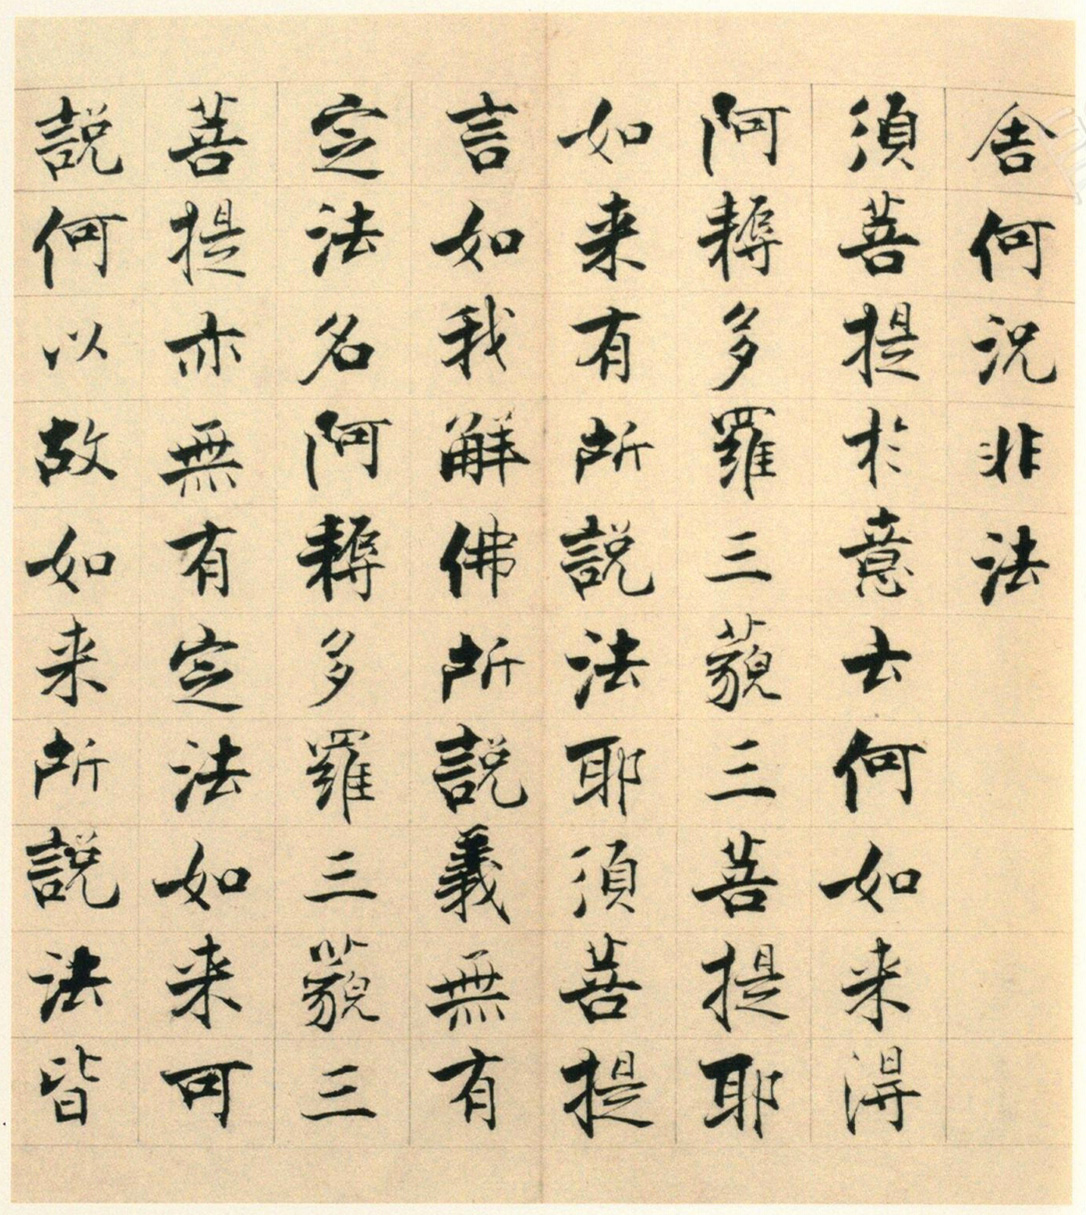 舍何況非法
須菩提於意云何如来得
阿耨多羅三藐三菩提耶
如来有所説法耶須菩提
言如我解佛所説義無有
定法名阿耨多羅三藐三
菩提亦無有定法如来可
説何以故如来所説法皆